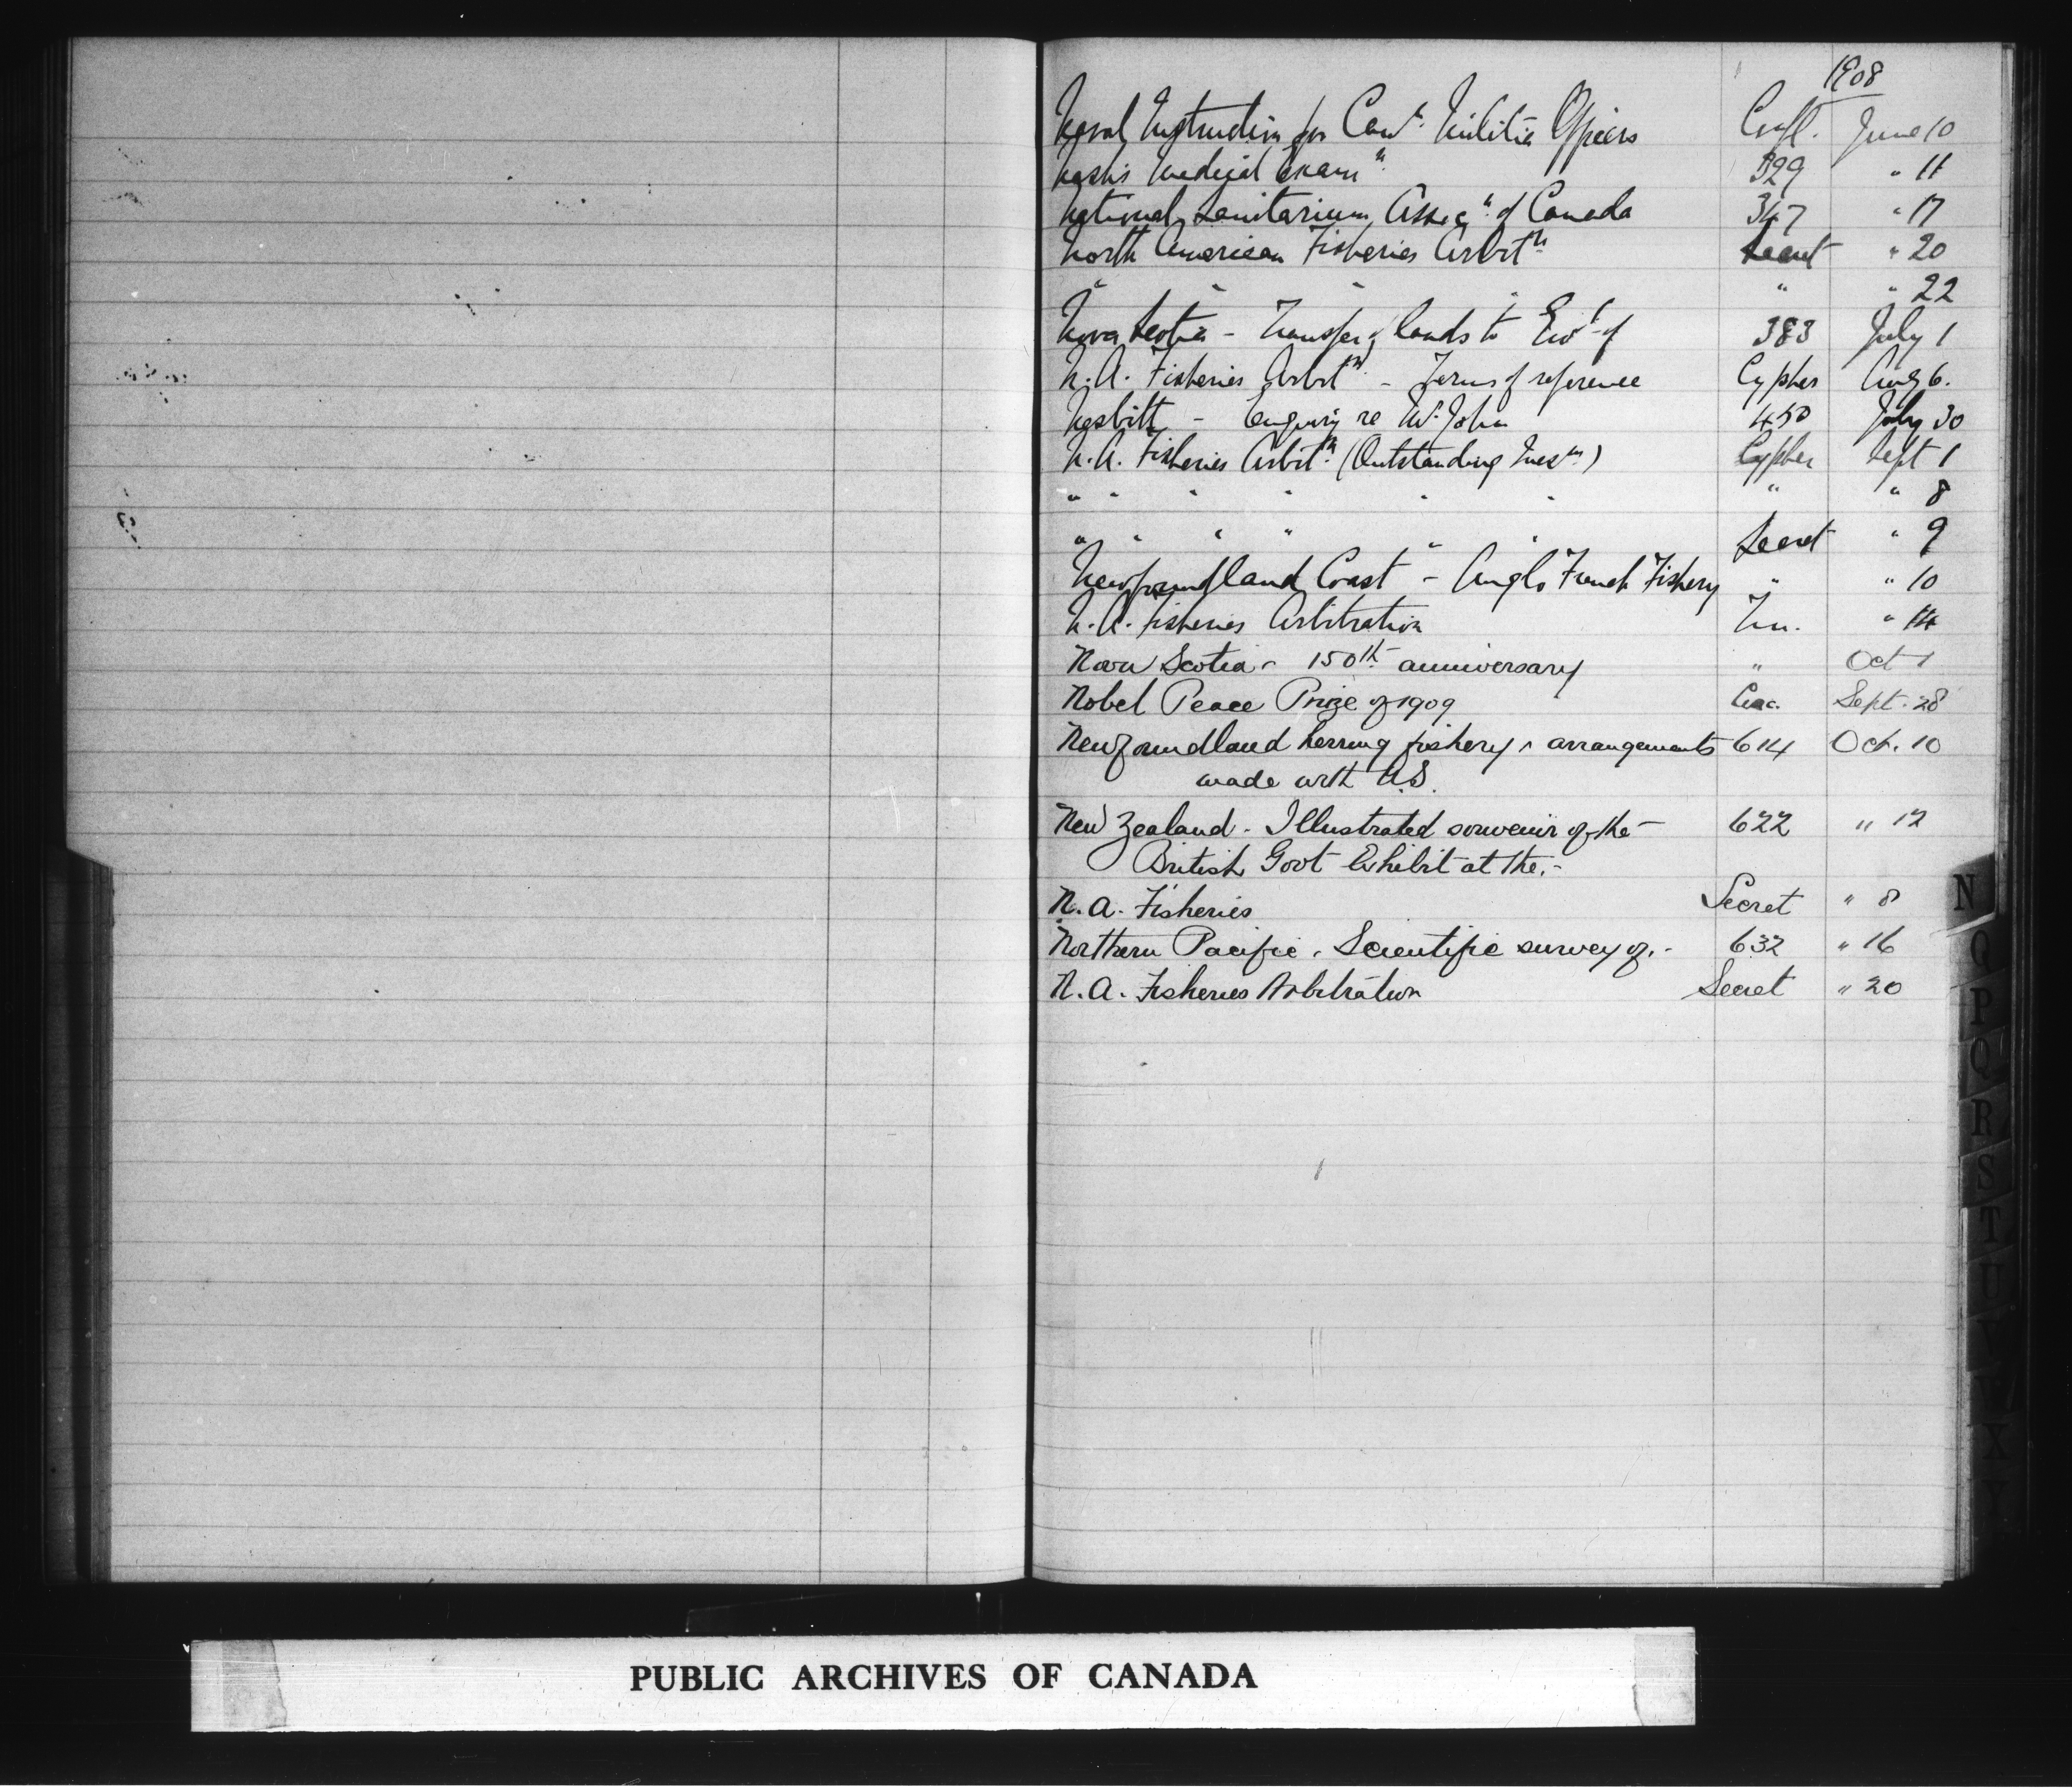 1908
Naval Instruction for Can^n. Militia Officers Confl. June 10
Medical Exam^n. 329 " 11
National Sanitarium Assoc^n. of Canada 347 " 17
North American Fisheries Arbit^n. Secret " 20
" " " " " " 22
Nova Scotia - Transfer of lands to Gov^t of 383 July 1
N.A. Fisheries Arbit^n. - Terms of reference Cypher Aug 6.
Nesbitt - Enquiry re W. John 450 July 30
N.A. Fisheries Arbit^n. (Outstanding Ques^ns.) Cypher Sept 1
" " " " " " " " 8
" " " " " " Secret " 9
Newfoundland Coast - Anglo French Fishery " " 10
N.A. Fisheries Arbitration " 14
Nova Scotia - 150th anniversary " Oct 1
Nobel Peace Prize of 1909 Circ. Sept. 28
Newfoundland herring fishery - arrangements 614 Oct. 10
made with U.S.
New Zealand - Illustrated souvenir of the - 622 " 12
British Govt Exhibit at the. -
N.A. Fisheries Secret " 8
Northern Pacific. Scientific survey of. - 632 " 16
N.A. Fisheries Arbitration Secret " 20
N
O
P
Q
R
S
T
U
V
X
Y
PUBLIC ARCHIVES OF CANADA